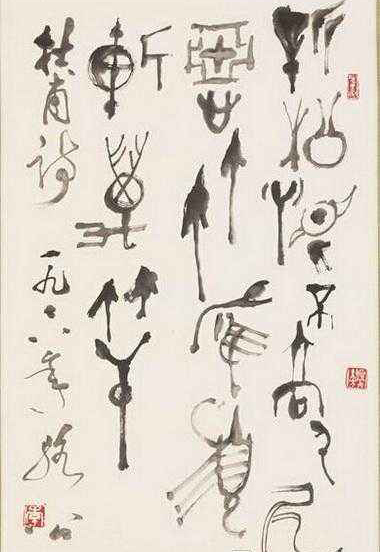 新松恨不高千尺
惡竹應須
斬萬竿
杜甫詩 一九七八年